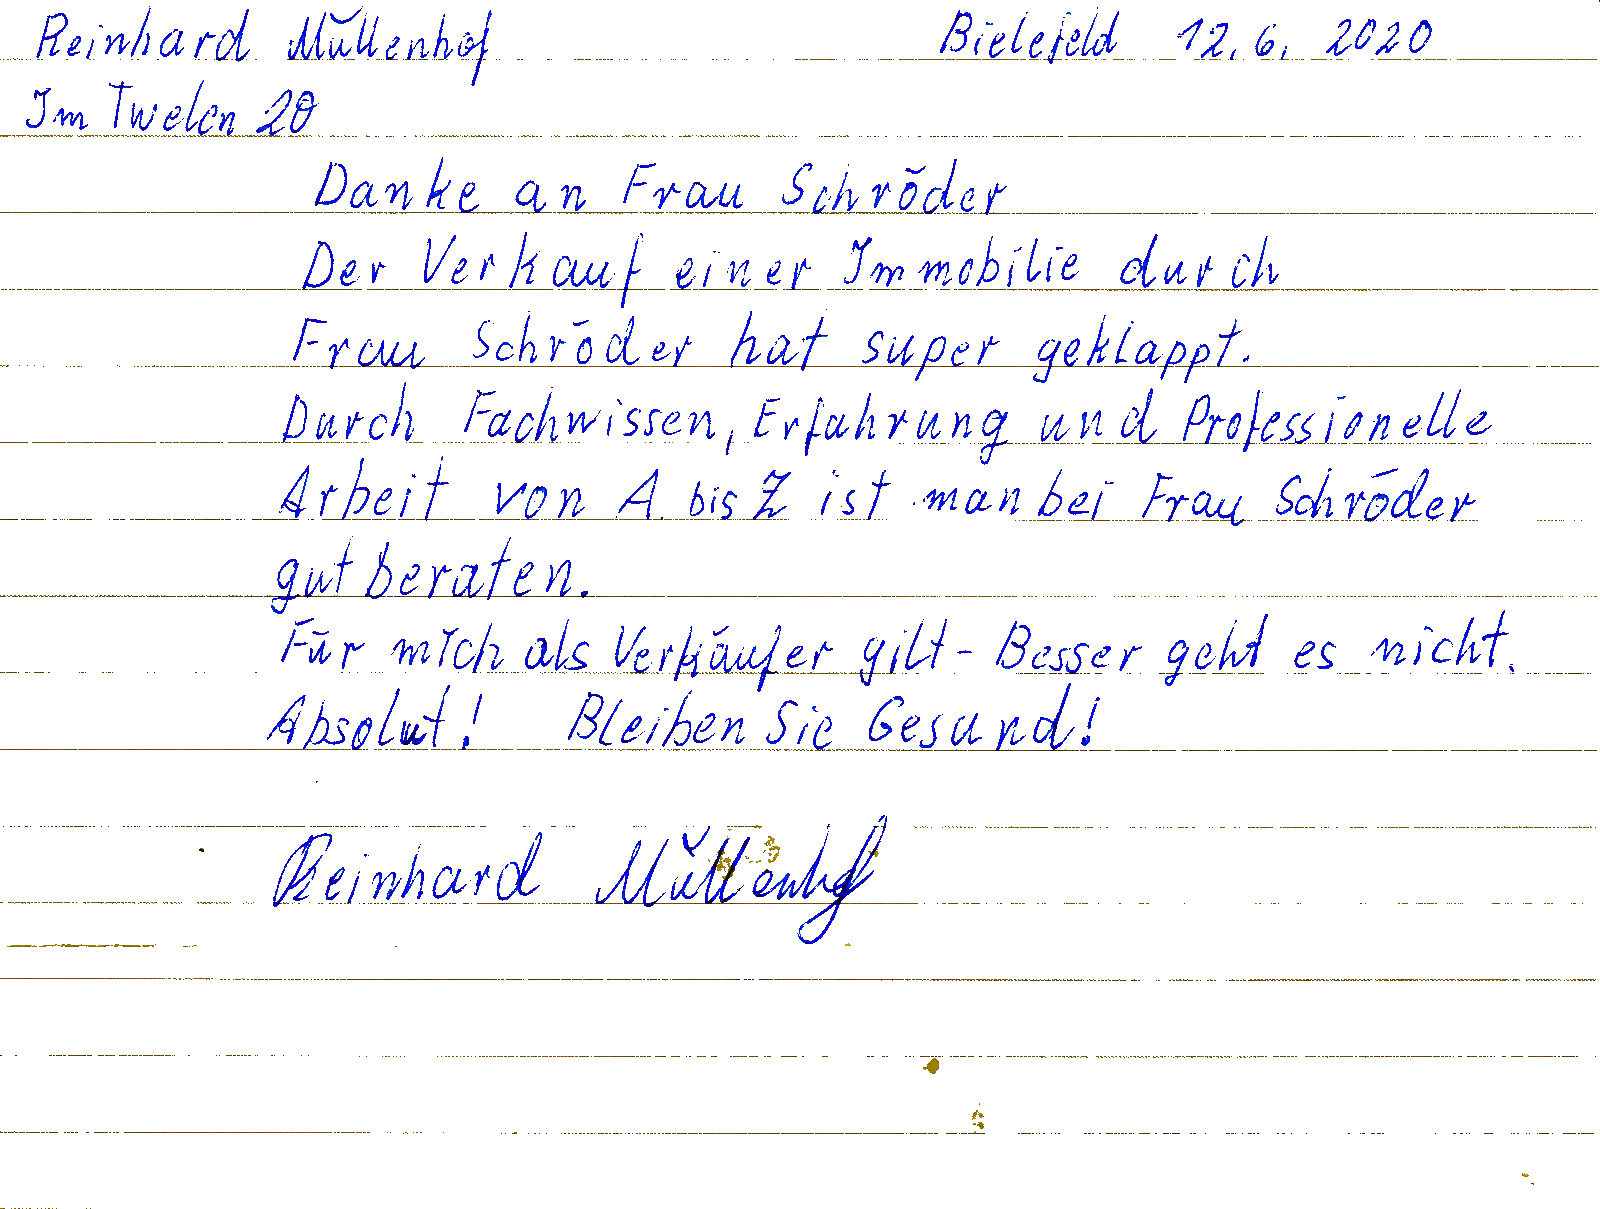 Reinhard Müllenhof Bielefeld 12.6.2020
Im Twelen 20
Danke an Frau Schröder
Der Verkauf einer Immobilie durch
Frau Schröder hat super geklappt.
Durch Fachwissen, Erfahrung und Professionelle
Arbeit von A bis Z ist man bei Frau Schröder
gut beraten.
Für mich als Verkäufer gilt - Besser geht es nicht.
Absolut! Bleiben Sie Gesund!
Reinhard Müllenhof